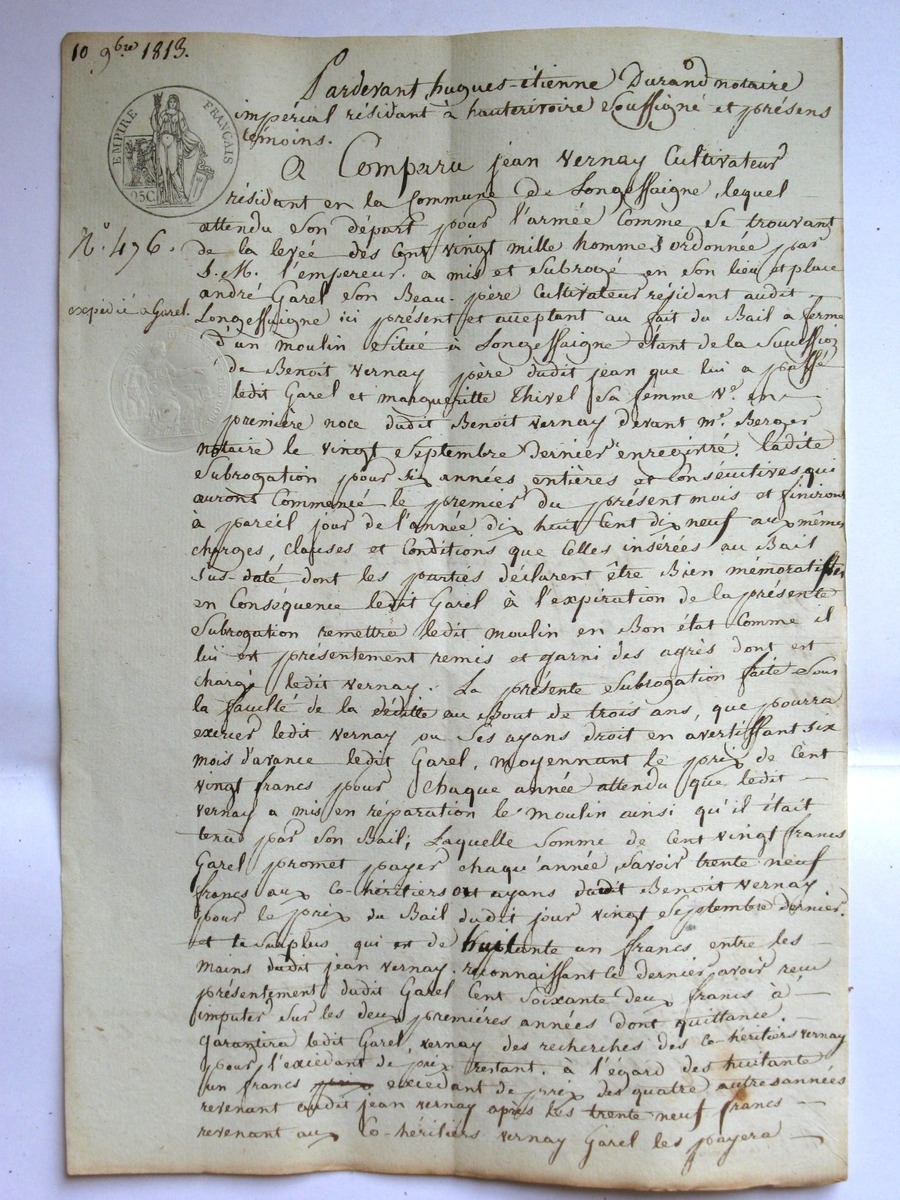 10 9bre 1813.
EMPIRE FRANÇAIS
25C.
N.º 476.
expédié a Garel.
Pardevant hugues-étienne Durand notaire
impérial résidant à hauterivoire soussigné et présens
témoins.
A Comparu jean Vernay Cultivateur
résidant en la Commune de Longessaigne, lequel
attendu son départ pour l'armée Comme se trouvant
de la levée des Cent vingt mille hommes ordonnée par
S. M. l'empereur. a mis et subrogé en son lieu et place
andré Garel son Beau-père Cultivateur résidant audit
Longessaigne ici présent et acceptant au fait du Bail a ferme
d'un moulin situé à Longessaigne étant de la Succession
de Benoit Vernay père dudit jean que lui a passé
ledit Garel et margueritte Thivel sa femme Ve. en
première noce dudit Benoit Vernay devant me. Berger
notaire le vingt Septembre Dernier enregistré. ladite
Subrogation pour six années entières et Consécutives qui
auront Commencé le premier du présent mois et finiront
à pareil jour de l'année dix huit Cent dix neuf aux mêmes
charges, clauses et Conditions que Celles insérées au Bail
sus-daté dont les parties déclarent être Bien mémoratives
en Conséquence ledit Garel à l'expiration de la présente
Subrogation remettra ledit moulin en Bon état Comme il
lui est présentement remis et garni des agrès dont est
chargé ledit Vernay. La présente Subrogation faite sous
la faculté de la déditte au Bout de trois ans, que pourra
exercer ledit Vernay ou ses ayans droit en avertissant six
mois d'avance ledit Garel, moyennant le prix de Cent
vingt francs pour chaque année attendu que ledit
Vernay a mis en réparation le moulin ainsi qu'il était
tenu par son Bail; Laquelle Somme de Cent vingt francs
Garel promet payer chaqu'année, savoir trente neuf
francs aux Co-héritiers ayans dudit Benoit Vernay
pour le prix du Bail dudit jour vingt Septembre dernier.
et le surplus qui est de huitante un francs entre les
mains dudit jean Vernay. reconnaissant Ce dernier avoir reçu
présentement dudit Garel Cent Soixante deux francs à
imputer sur les deux premières années dont quittance.
garantira ledit Garel, Vernay des recherches des Co-héritiers Vernay
pour l'excédant de prix restant. à l'égard des huitante
un francs prix excedant de prix des quatre autres années
revenant audit jean Vernay après les trente neuf francs
revenant aux Co-héritiers Vernay Garel les payera